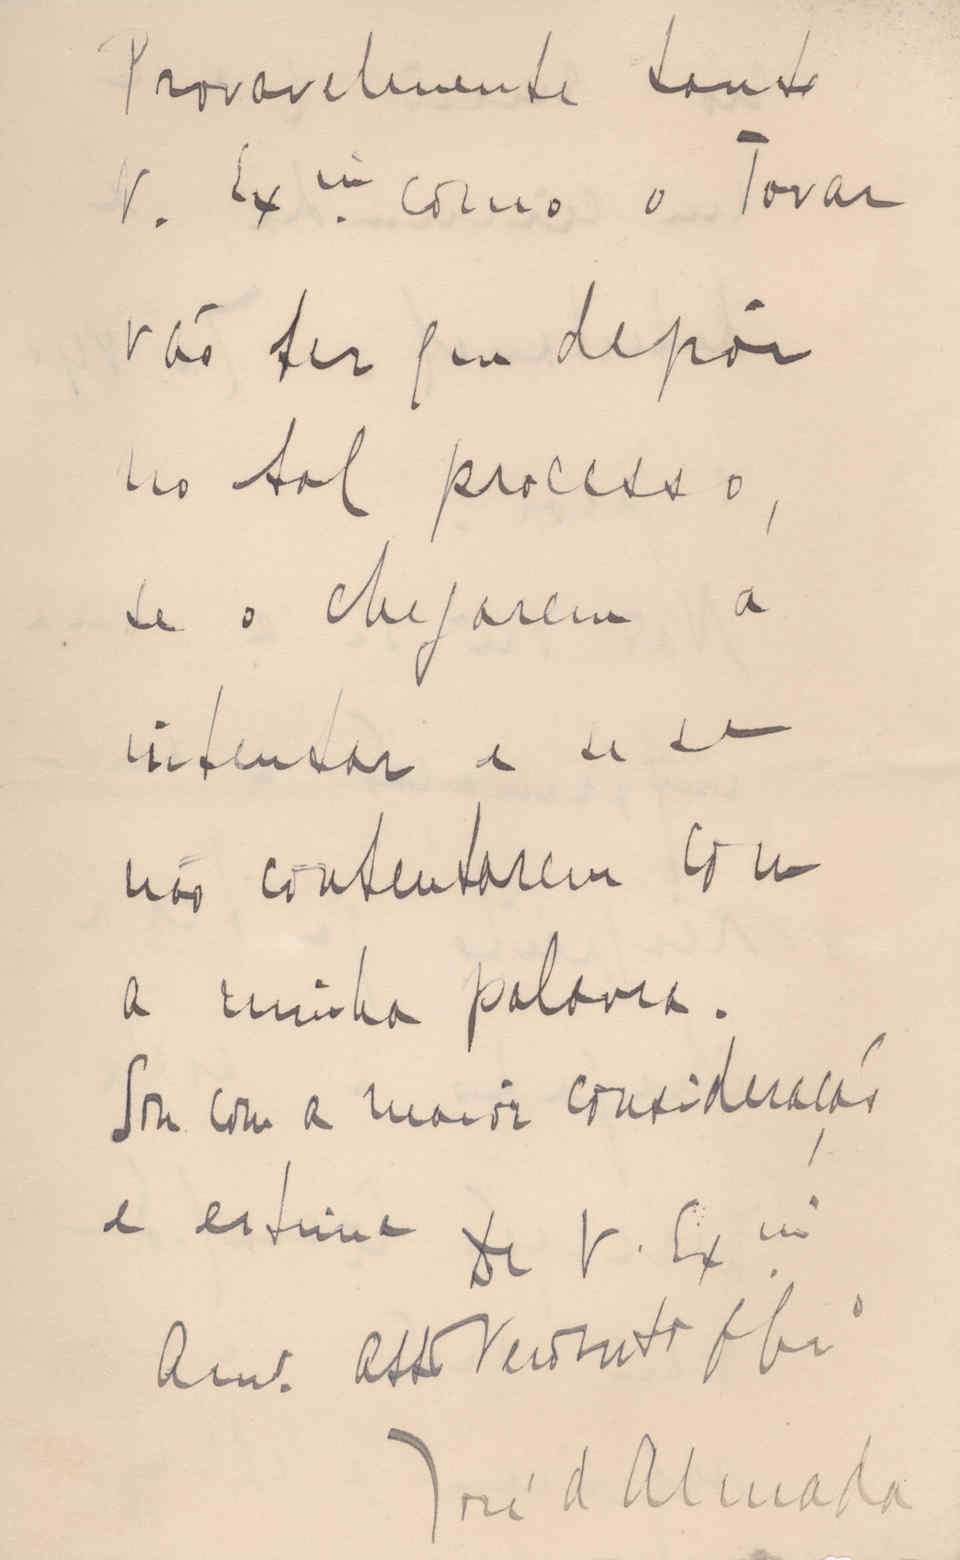 Provavelmente tanto
V. Exª. como o Tovar
vão ter que depôr
no tal processo,
se o chegarem a
intentar e se se
não contentarem com
a minha palavra.
Sou com a maior consideração
e estima De V. Exª.
Amº. Attº Venor muito
José d'Almada